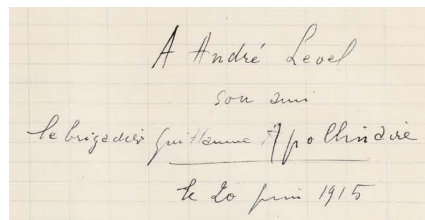 A André Level
son ami
le brigadier Guillaume Apollinaire
le 20 juin 1915